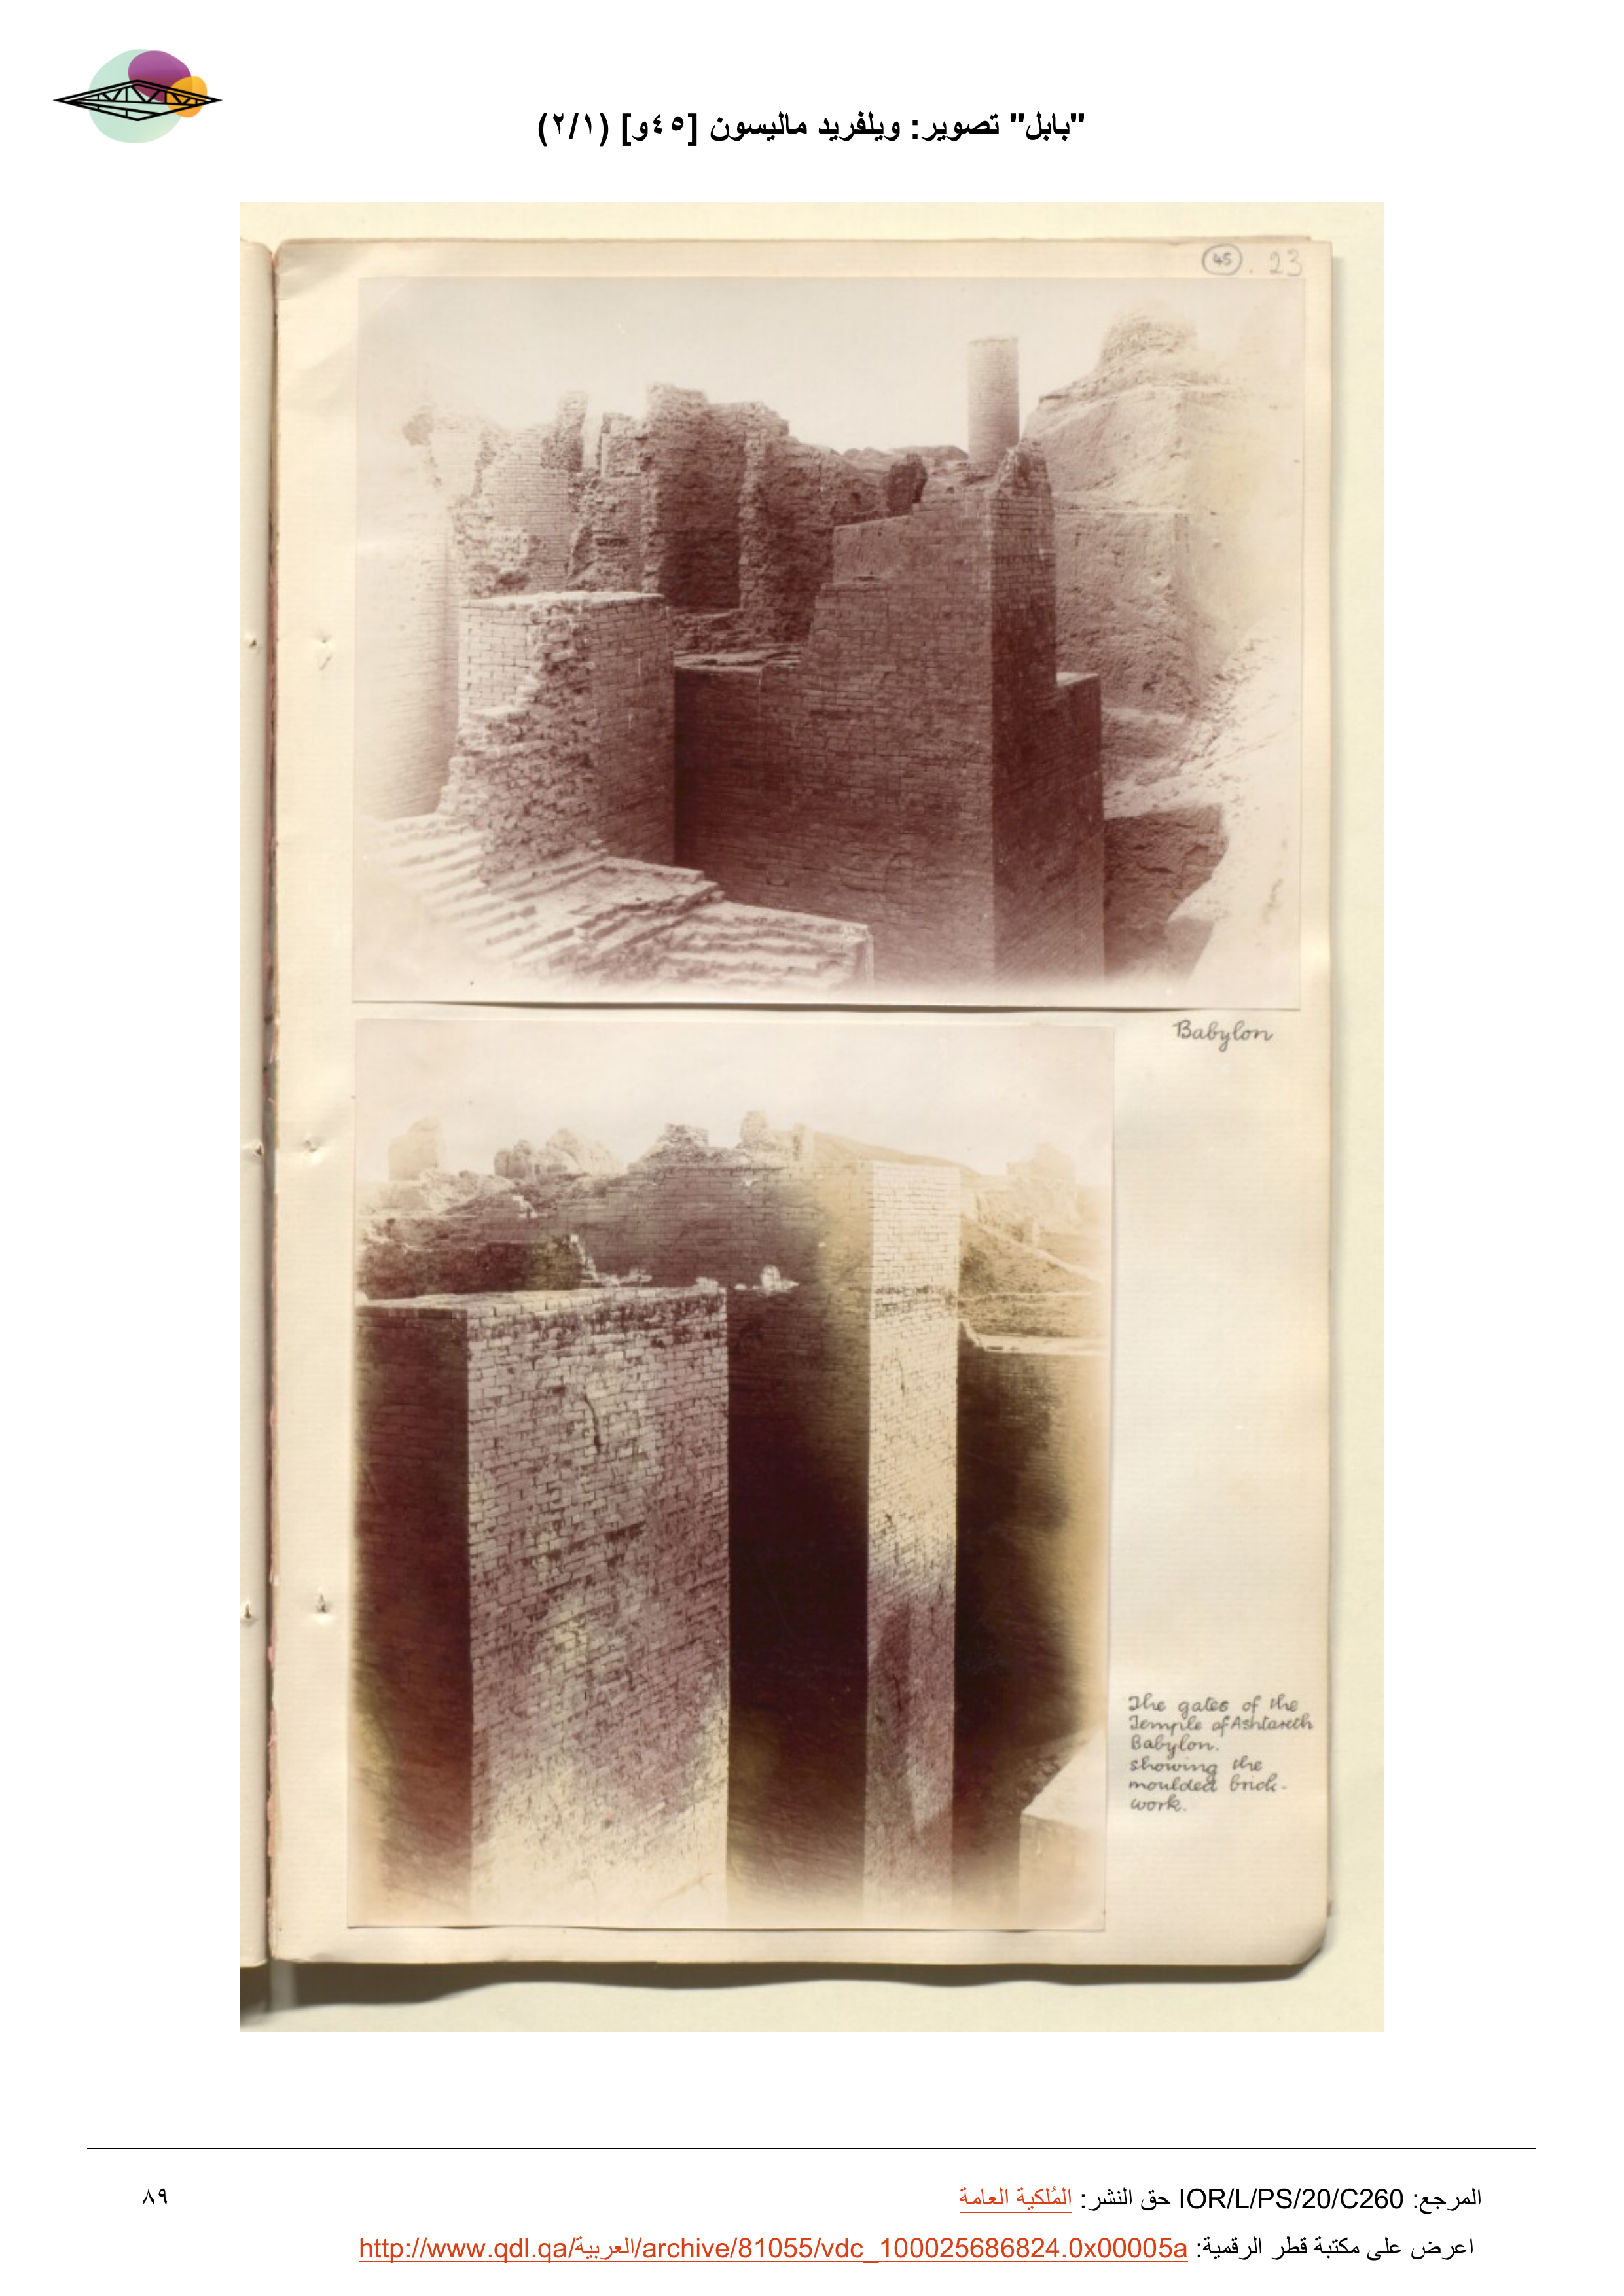 "بابل" تصوير: ويلفريد ماليسون [٤٥و] (٢/١)
45 . 23
Babylon
The gates of the
Temple of Ashtareth
Babylon.
showing the
moulded brick-
work.
المرجع: IOR/L/PS/20/C260 حق النشر: المُلكية العامة
٨٩
اعرض على مكتبة قطر الرقمية: http://www.qdl.qa/العربية/archive/81055/vdc_100025686824.0x00005a